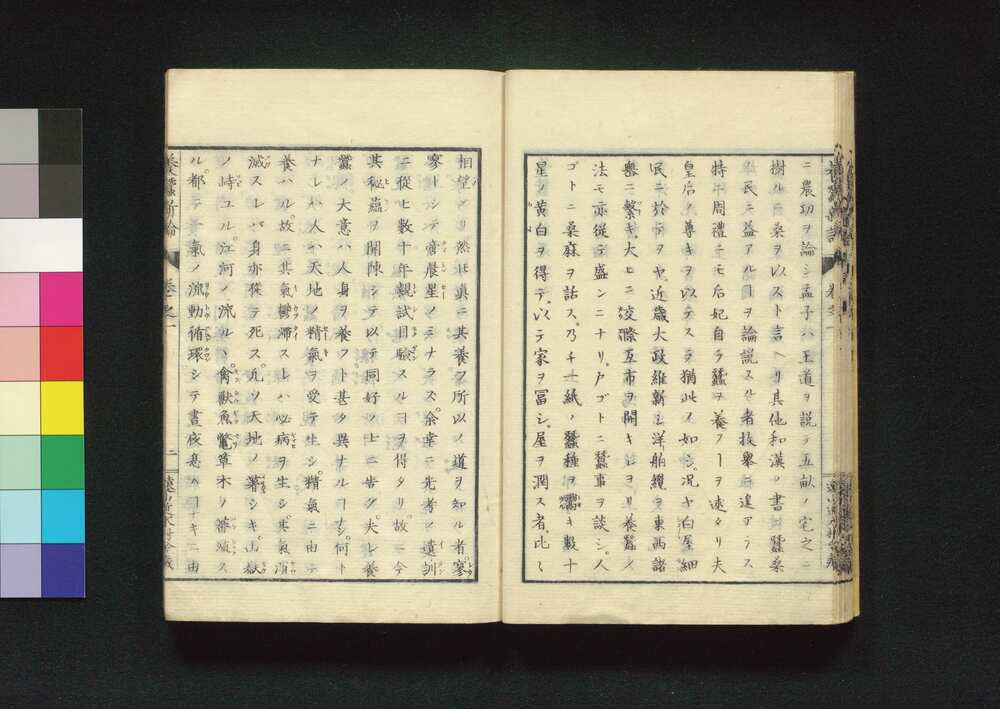 ニ農功ヲ論シ孟子ハ王道ヲ説テ五畝ノ宅之ニ
樹ルニ桑ヲ以スト言ヘリ其他和漢ノ書蠶桑
民ニ益アルヿヲ論説スル者枚舉ニ遑アラス
特ニ周禮ニモ后妃自ラ蠶ヲ養フヿヲ速タリ夫
皇后ノ尊キヲ以テスラ猶此ノ如シ况ヤ白屋細
民ニ於テヲヤ近歳大政維新シ洋舶纜ヲ東西諸
ニ繋キ大ヒニ交際互市ヲ開キシヨリ養蠶ノ
法モ亦從テ盛ンニナリ戸ゴトニ蠶事ヲ談シ人
ゴトニ桑麻ヲ話ス乃チ一紙ノ蠶種ヲ鬻キ數十
星ノ黄白ヲ得テ以テ家ヲ冨シ屋ヲ潤ス者比〻
相望メリ然𪜈眞ニ其養フ所以ノ道ヲ知ル者寥
寥トシテ啻晨星ノミナラス余幸ニ先考ノ遺訓
ニ從ヒ數十年親試目驗スルヿヲ得タリ故ニ今
其秘蘊ヲ開陳シテ以テ同好ノ士ニ告グ夫レ養
蠶ノ大意ハ人身ヲ養フト甚タ異ナルヿナシ何ト
ナレハ人ハ天地ノ精氣ヲ受テ生シ精氣ニ由テ
養ハル故ニ其氣鬱滯スレハ必病ヲ生シ其氣消
滅スレバ身亦從テ死ス凢ソ天地ノ著シキ山嶽
ノ峙ユル江河ノ流ルヽ禽獸魚鼈草木ノ蕃殖ス
ル都テ氣ノ流動循環シテ晝夜息ハヿナキニ由
養蠶新論
卷之一
二